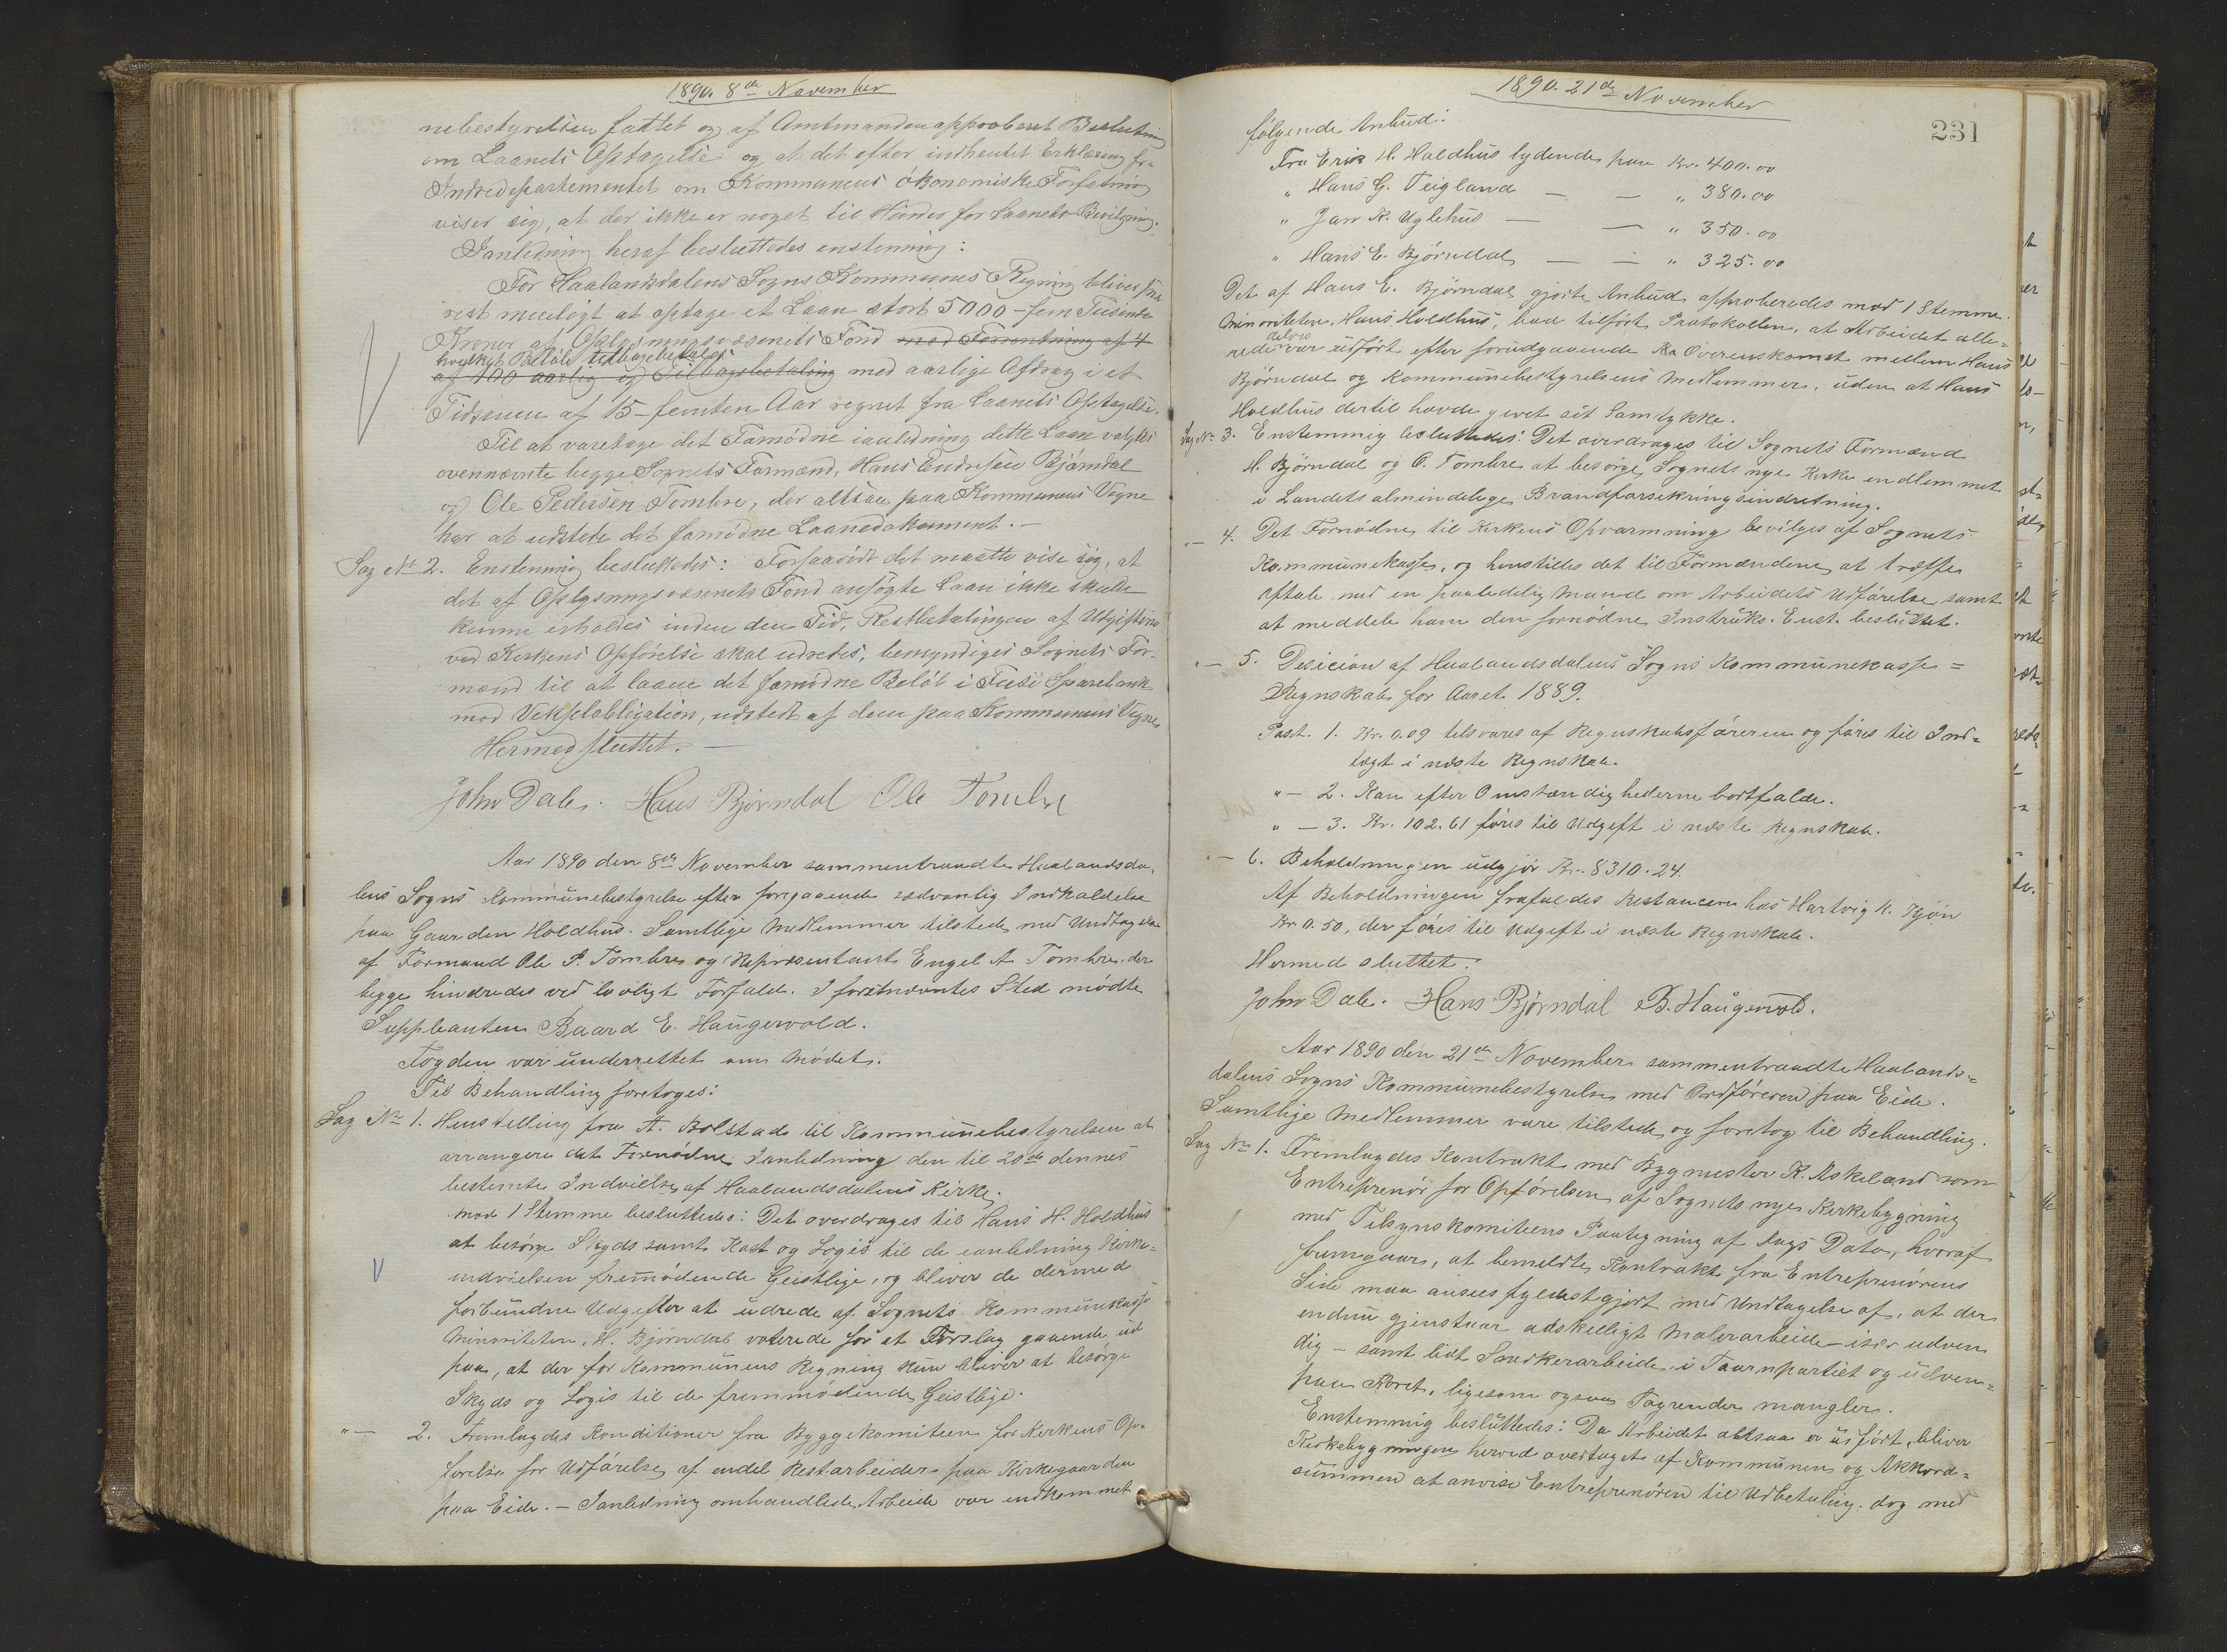 1890. 8de November
nebestyrelsen fattet og af Amtmanden approberet Beslutning
om Laanets Optagelse og at det efter indhentet Erklæring fra
Indredepartementet om Kommunens økonomiske Forfatning
viser sig, at der ikke er noget til Hinder for Laanets Bevilgning.
Ianledning heraf besluttedes enstemmig:
For Haalandsdalens Sogns Kommunes Regning bliver
rest meeligt at optage et Laan stort 5000 - fem Tusinde
Kroner af Oplysningsvæsenets Fond med Forrentning af 4
hvilket Beløb tilbagebetales
af 100 aarlig og Tilbagebetaling med aarlige Afdrag i et
Tidsrum af 15 - femten Aar regnet fra Laanets Optagelse.
Til at varetage det Fornødne ianledning dette Laan valgtes
ovennævnte begge Sognets Formænd, Hans Endresen Bjørndal
og Ole Pedersen Tombre, der altsaa paa Kommunens Vegne
har at udstede det fornødne Laanedokument. -
Sag No 2. Enstemmig besluttedes: Forsaavidt det maatte vise sig, at
det af Oplysningsvæsenets Fond ansøgte Laan ikke skulde
kunne erholdes inden den Tid, Restbetalingen af Udgifterne
ved Kirkens Opførelse skal udredes, bemyndiges Sognets For-
mænd til at laane det fornødne Beløb i Fuse Sparebank
mod Vekselobligation, udstedt af dem paa Kommunens Vegne
Hermed sluttet. -
John Dale. Hans Bjørndal Ole Tombre
Aar 1890 den 8de November sammentraadte Haalandsda-
lens Sogns Kommunebestyrelse efter foregaaende sædvanlig Indkaldelse
paa Gaarden Holdhus. Samtlige Medlemmer tilstede med Undtagelse
af Formand Ole P. Tombre og Repræsentant Engel A Tombre, der
begge hindredes ved lovligt Forfald. I førstnævntes Sted mødte
Suppleanten Baard E. Haugervold.
Fogden var underrettet om Mødet.
Til Behandling foretoges:
Sag No 1. Henstilling fra A. Bolstad til Kommunebestyrelsen at
arrangere det Fornødne Ianledning den til 20de dennes
bestemte Indvielse af Haalandsdalens Kirke.
Mod 1 Stemme besluttedes: Det overdrages til Hans H. Holdhus
at besørge Skyds samt Kost og Logis til de ianledning Kirke-
indvielsen fremmødende Geistlige, og bliver de dermed
forbundne Udgifter at udrede af Sognets Kommunekasse
Minoriteten, H. Bjørndal voterede for et Forslag gaaende ud
paa, at der for Kommunens Regning kun bliver at besørge
Skyds og Logis til de fremmødende Geistlige.
" — 2. Fremlagdes Konditioner fra Byggekomiteen for Kirkens Op-
førelse for Udførelse af endel Restarbeider paa Kirkegaarden
paa Eide. - Ianledning omhandlede Arbeide var indkommet
1890. 21de November
231
følgende Anbud:
Fra Erik H. Holdhus lydende paa Kr. 400.00
" Hans G. Teigland — — " 380.00
" Jan K. Uglehus — — " 350.00
" Hans E. Bjørndal — — " 325.00
Det af Hans E. Bjørndal gjorte Anbud approberedes mod 1 Stemme.
Minoriteten, Hans Holdhus, bad tilført Protokollen, at Arbeidet alle-
delvis
rede var udført efter forudgaaende Overenskomst mellem Hans
Bjørndal og Kommunebestyrelsens Medlemmer, uden at Hans
Holdhus dertil havde givet sit Samtykke.
Sag No 3. Enstemmig besluttedes: Det overdrages til Sognets Formænd
H. Bjørndal og O. Tombre at besørge Sognets nye Kirke indlemmet
i Landets almindelige Brandforsikringsindretning.
" — 4. Det Fornødne til Kirkens Opvarmning bevilges af Sognets
Kommunekasse, og henstilles det til Formændene at træffe
Aftale med en paalidelig Mand om Arbeidets Udførelse samt
at meddele ham den fornødne Instruks. Enst. besluttet.
" — 5. Desicion af Haalandsdalens Sogns Kommunekasse-
Regnskab for Aaret 1889.
Post. 1. Kr. 0.09 tilsvares af Regnskabsføreren og føres til Ind-
tægt i næste Regnskab.
" — 2. Kan efter Omstændighederne bortfalde.
" — 3. Kr. 102.61 føres til Udgift i næste Regnskab.
" — 6. Beholdningen udgjør Kr. 8310.24.
Af Beholdningen frafaldes Restancen hos Hartvig K. Kjøn
Kr 0.50, der føres til Udgift i næste Regnskab.
Hermed sluttet.
John Dale. Hans Bjørndal B. Haugervold.
Aar 1890 den 21de November sammentraadte Haalands-
dalens Sogns Kommunebestyrelse med Ordføreren paa Eide.
Samtlige Medlemmer vare tilstede og foretog til Behandling.
Sag No 1. Fremlagdes Kontrakt med Bygmester K. Askeland som
Entreprenør for Opførelsen af Sognets nye Kirkebygning
med Tilsynskomiteens Paategning af Dags Dato, hvoraf
fremgaar, at bemeldte Kontrakt fra Entreprenørens
Side maa ansees fyldestgjort med Undtagelse af, at der
endnu gjenstaar adskilligt Malerarbeide - især udven
dig - samt lidt Snekkerarbeide i Taarnpartiet og udven-
paa Koret, ligesom ogsaa Tagrender mangler.
Enstemmig besluttedes: Da Arbeidet altsaa er udført, bliver
Kirkebygningen herved overtaget af Kommunen og Akkord-
summen at anvise Entreprenøren til Udbetaling, dog med